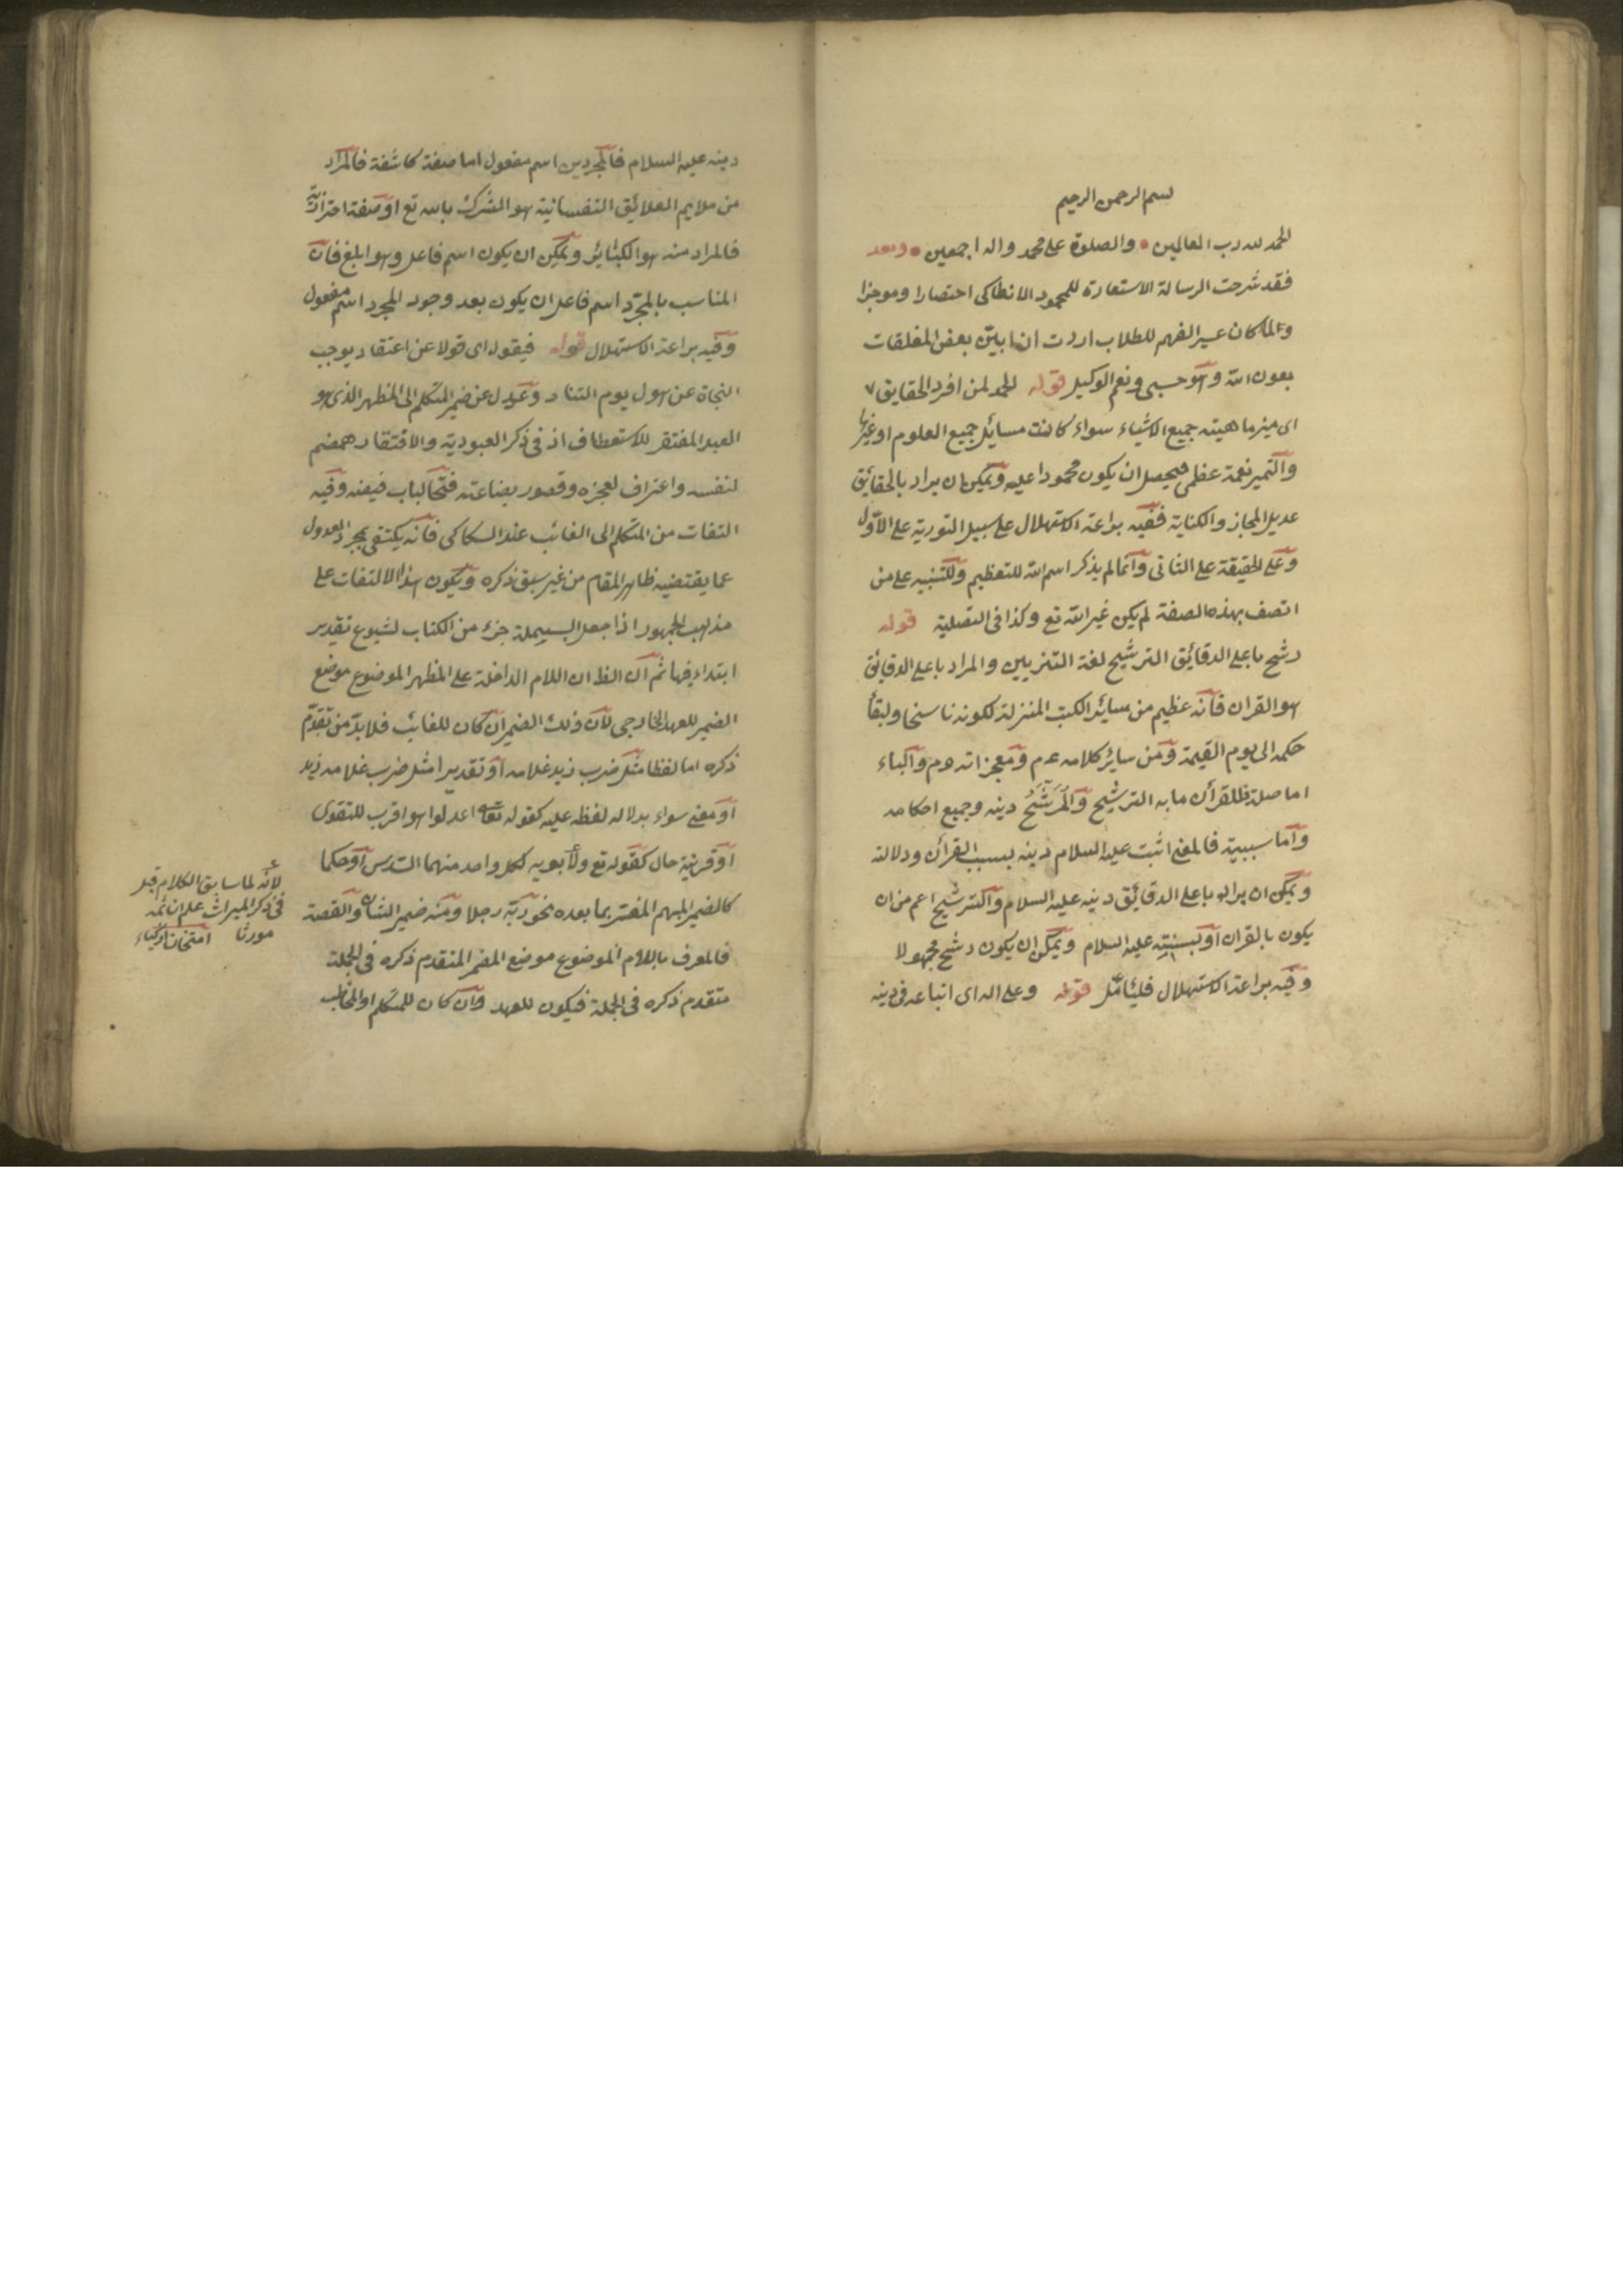 بسم الرحمن الرحيم
الحمد لله رب العالمين • والصلوة على محمد واله اجمعين • وبعد
فقد شرحت الرسالة الاستعارة للمحمود الانطاكى احتصارا وموجزا
ولما كان عسير الفهم للطلاب اردت ان ابيّن بعض المغلقات
بعون الله وهو حسبى ونعم الوكيل قوله الحمد لمن افرد الحقايق
اى ميز ماهيته جميع الاشياء سواء كانت مسائل جميع العلوم او غيرها
والتميز نعمة عظمى فيحصل ان يكون محمودا عليه ويمكن ان يراد بالحقائق
عديل المجاز والكناية ففيه براعة الاستهلال على سبيل التورية على الاوّل
وعلى الحقيقة على الثانى وانما لم يذكر اسم الله للتعظيم وللتنبيه على من
اتصف بهذه الصفة لم يكن غير الله تع وكذا فى التصلية قوله
رشح باعلى الدقائق الترشيح لغة التزيين والمراد باعلى الدقائق
هو القران فانه عظيم من سائر الكتب المنزلة لكونه ناسخا ولبقأ
حكمه الى يوم القيمة ومن سائر كلامه عم ومعجزاته عم والباء
اما صلة فالقرأن ما به الترشيح والمُرَشَّحُ دينه وجميع احكامه
واما سببية فالمعنى اثبت عليه السلام دينه بسبب القرأن ودلالته
ويمكن ان يراد باعلى الدقائق دينه عليه السلام والترشيح اعم من ان
يكون بالقران او بسنته عليه السلام ويمكن ان يكون رشح مجهولا
وفيه براعة الاستهلال فليتأمّل قوله وعلى اله اى اتباعه فى دينه
دينه عليه السلام فالمجردين اسم مفعول اما صفة كاشفة فالمراد
من ملايم العلائق النفسانية هو الشرك بالله تع او صفة احترازية
فالمراد منه هو الكبائر ويمكن ان يكون اسم فاعل وهو ابلغ فان
المناسب بالمجرّد اسم فاعل ان يكون بعد وجود المجرد اسم مفعول
وفيه براعة الاستهلال قوله فيقول اى قولا عن اعتقاد يوجب
النجاة عن هول يوم التناد وعدل عن ضمير المتكلم الى المظهر الذى هو
العبد المفتقر للاستعطاف اذ فى ذكر العبودية والافتقار همضم
لنفسه واعتراف لعجزه وقصور بضاعته فتحًا لباب فيضه وفيه
التفات من المتكلم الى الغائب عند السكاكى فانه يكتفى بمجرد العدول
عما يقتضيه ظاهر المقام من غير سبق ذكره ويكون هذا الالتفات على
مذهب الجمهور اذا جعل البسيملة جزء من الكتاب لشيوع تقدير
ابتداء فيها ثم ان الظ ان اللام الداخلة على المظهر الموضوع موضع
الضمير للعهد الخارجى لان ذلك الضمير ان كان للغائب فلا بدّ من تقدّم
ذكره اما لفظا مثل ضرب زيد غلامه او تقديرا مثل ضرب غلامه زيد
او معنى سواء بدلالة لفظه عليه كقوله تعالى اعدلوا هو اقرب للتقوى
او قرينة حال كقوله تع ولأبويه لكل واحد منهما السدس او حكما
كالضمير المبهم المفسّر بما بعده نحو ربّه رجلا ومنه ضمير الشان والقصة
فالمعرف باللام الموضوع موضع المضمر المتقدم ذكره فى الجملة
متقدم ذكره فى الجملة فيكون للعهد وان كان للمتكلم او المخاطب
لانّه لما سابق الكلام قبل
فى ذكر الميراث علم ان ثمه
مورثا امتحان الاذكياء